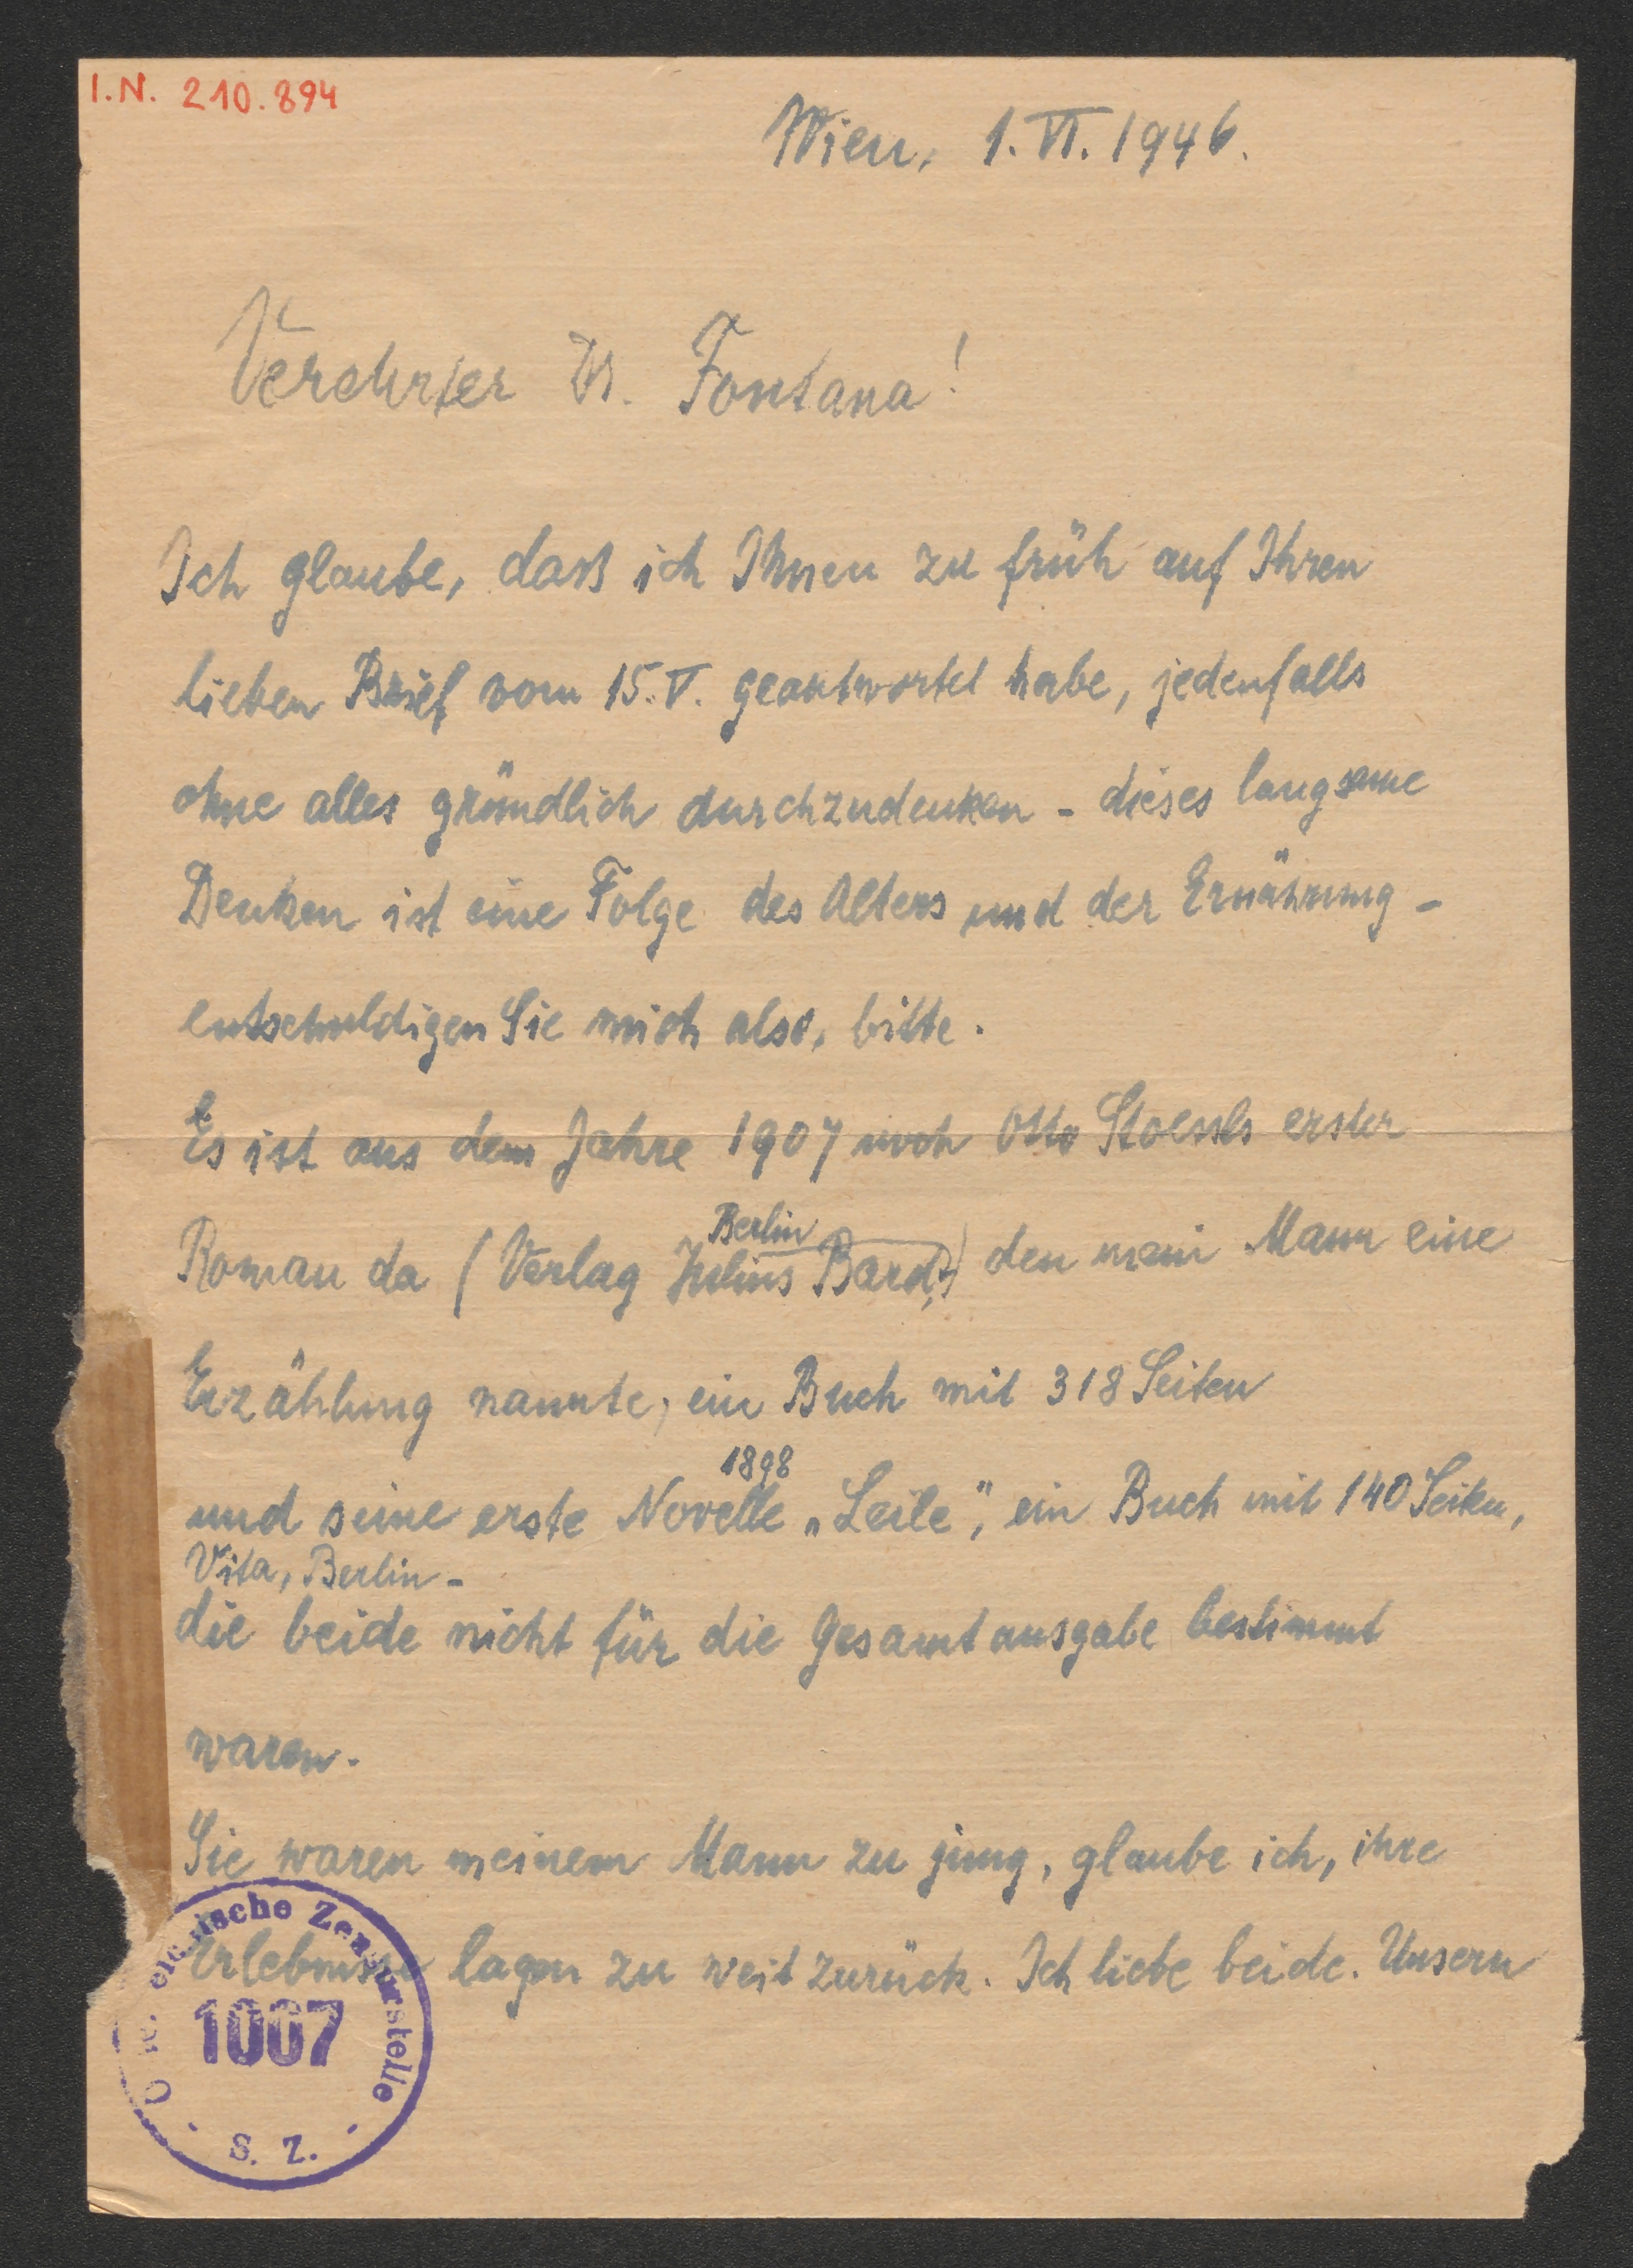 I.N. 210.894
Wien, 1. VI. 1946.
Verehrter Dr. Fontana!
Ich glaube, daß ich Ihnen zu früh auf Ihren
lieben Brief vom 15. V. geantwortet habe, jedenfalls
ohne alles gründlich durchzudenken - dieses langsame
Denken ist eine Folge des Alters und der Ernährung -
entschuldigen Sie mich also, bitte.
Es ist aus dem Jahre 1907 noch Otto Stoessls erster
Berlin
Roman da (Verlag Julius Bard,) den mein Mann eine
Erzählung nannte, ein Buch mit 318 Seiten
1898
und seine erste Novelle „Leile", ein Buch mit 140 Seiten,
Vita, Berlin -
die beide nicht für die Gesamtausgabe bestimmt
waren.
Sie waren meinem Mann zu jung, glaube ich, ihre
Erlebnisse lagen zu weit zurück. Ich liebe beide. Unsern
Zensurstelle
1007
- S. Z. -